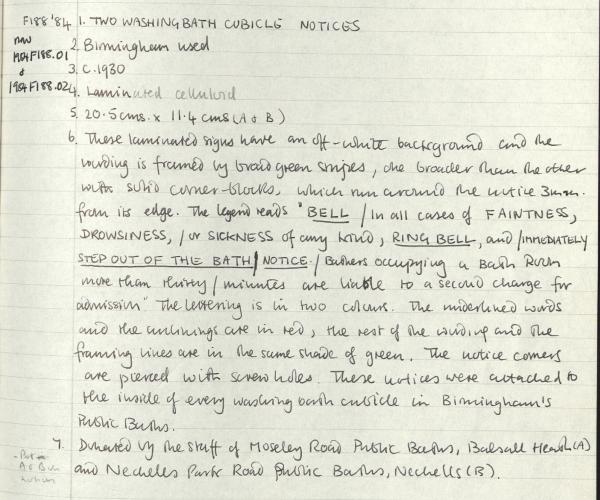 F188'84 1. TWO WASHING BATH CUBICLE NOTICES
now
1984F188.01 2. Birmingham used
& 3. C.1930
1984F188.02 4. Laminated celluloid
5. 20.5cms. x 11.4 cms (A & B)
6. These laminated signs have an off-white background and the
wording is framed by broad green stripes, one broader than the other
with solid corner-blocks, which run around the notice 3mm.
from its edge. The legend reads "BELL / In all cases of FAINTNESS,
DROWSINESS, / or SICKNESS of any kind, RING BELL, and / IMMEDIATELY
STEP OUT OF THE BATH / NOTICE. / Bathers occupying a Bath Room
more than thirty / minutes are liable to a second charge for
admission" The lettering is in two colours. The underlined words
and the underlinings are in red, the rest of the wording and the
framing lines are in the same shade of green. The notice corners
are pierced with screw holes. These notices were attached to
the inside of every washing bath cubicle in Birmingham's
Public Baths.
7. Donated by the staff of Moseley Road Public Baths, Balsall Heath (A)
and Nechells Park Road Public Baths, Nechells (B).